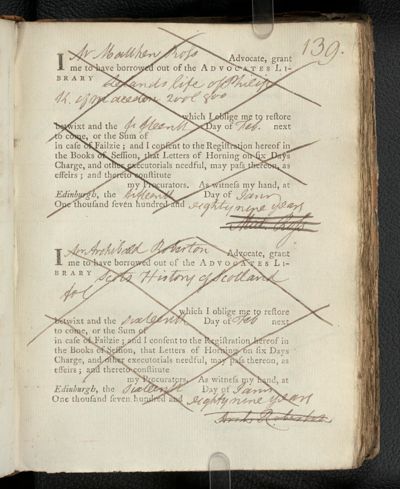 139.
I Mr Matthew Ross Advocate, grant
me to have borrowed out of the ADVOCATES LI-
BRARY Lelands life of Philip
K. of Macedon 2 vol 8vo
which I oblige me to reſtore
betwixt and the fifteenth Day of Feb. next
to come, or the Sum of
in caſe of Failzie; and I conſent to the Regiſtration hereof in
the Books of Seſſion, that Letters of Horning on ſix Days
Charge, and other executorials needful, may paſs thereon, as
effeirs; and thereto conſtitute
my Procurators. As witneſs my hand, at
Edinburgh, the fifteenth Day of Janry
One thouſand ſeven hundred and eighty nine years
Matt. Ross
I Mr Archibald Roberton Advocate, grant
me to have borrowed out of the ADVOCATES LI-
BRARY Scots History of Scotland
fol
which I oblige me to reſtore
betwixt and the sixteenth Day of Feb next
to come, or the Sum of
in caſe of Failzie; and I conſent to the Regiſtration hereof in
the Books of Seſſion, that Letters of Horning on ſix Days
Charge, and other executorials needful, may paſs thereon, as
effeirs; and thereto conſtitute
my Procurators. As witneſs my hand, at
Edinburgh, the sixteenth Day of Janry
One thouſand ſeven hundred and eighty nine years
Archd Roberton